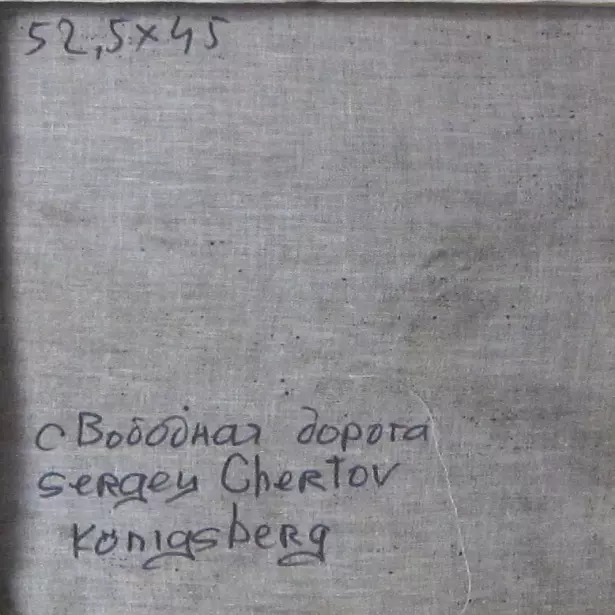 52,5×45
сВободная дорога
sergey Chertov
Königsberg